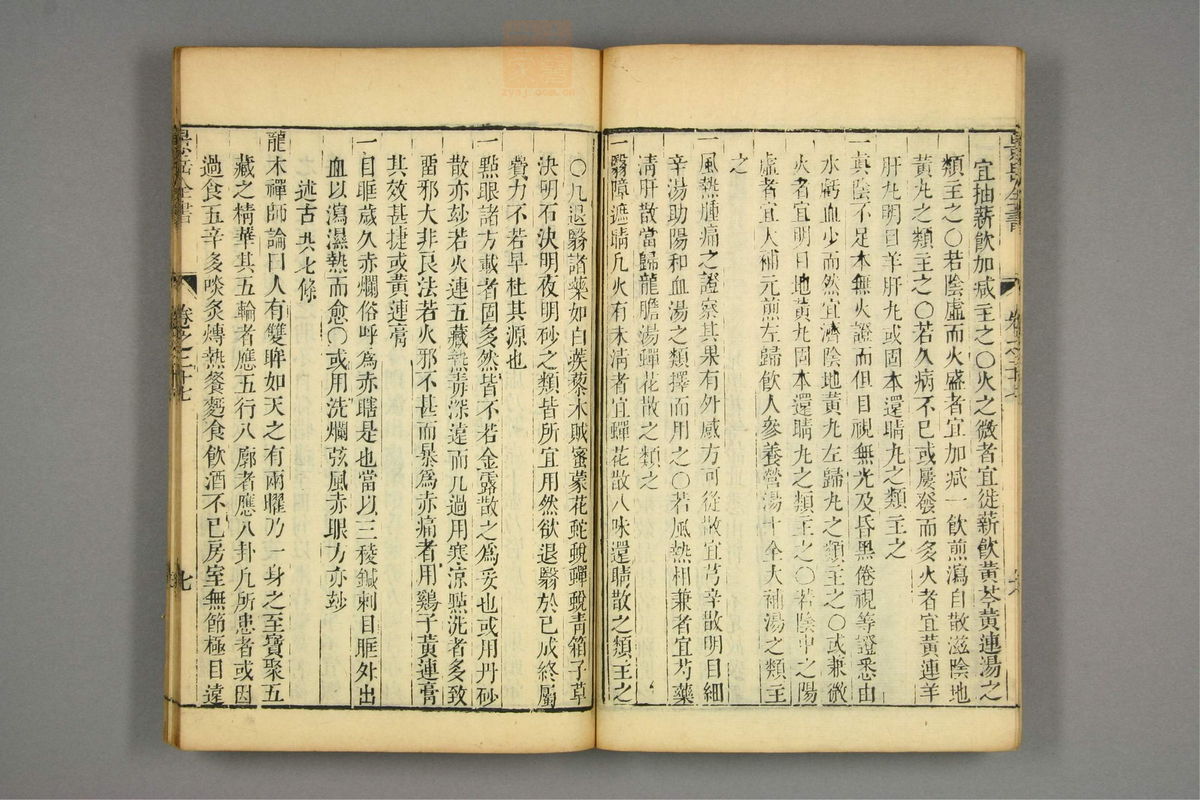 宜抽薪飲加減主之〇火之微者宜徙薪飲黃芩黃連湯之
類主之〇若陰虛而火盛者宜加減一飲煎瀉白散滋陰地
黃丸之類主之〇若久病不已或屢發而多火者宜黃連羊
肝丸明目羊肝丸或固本還睛丸之類主之
一真陰不足本無火證而但目視無光及昏黑倦視等證悉由
水虧血少而然宜濟陰地黃丸左歸丸之類主之〇或兼微
火者宜明目地黃丸固本還睛丸之類主之〇若陰中之陽
虛者宜大補元煎左歸飲人參養營湯十全大補湯之類主
之
一風熱腫痛之證察其果有外感方可從散宜芎辛散明目細
辛湯助陽和血湯之類擇而用之〇若風熱相兼者宜芍藥
清肝散當歸龍膽湯蟬花散之類之
一翳障遮睛凡火有未清者宜蟬花散八味還睛散之類主之
〇凡退翳諸藥如白蒺藜木賊蜜蒙花蛇蛻蟬蛻青箱子草
決明石決明夜明砂之類皆所宜用然欲退翳於已成終屬
費力不若早杜其源也
一點眼諸方載者固多然皆不若金露散之為妥也或用丹砂
散亦玅若火連五藏熱毒深遠而凡過用寒涼點洗者多致
畱邪大非良法若火邪不甚而暴為赤痛者用鷄子黃連膏
其效甚捷或黃連膏
一目眶歲久赤爛俗呼為赤瞎是也當以三稜鍼刺目眶外出
血以瀉濕熱而愈〇或用洗爛弦風赤眼方亦玅
述古共七條
龍木禪師論曰人有雙眸如天之有兩曜乃一身之至寶聚五
藏之精華其五輪者應五行八廓者應八卦凡所患者或因
過食五辛多啖炙煿熱餐麪食飲酒不已房室無節極目遠
景岳全書
卷之二十七
七
zysj.com.cn